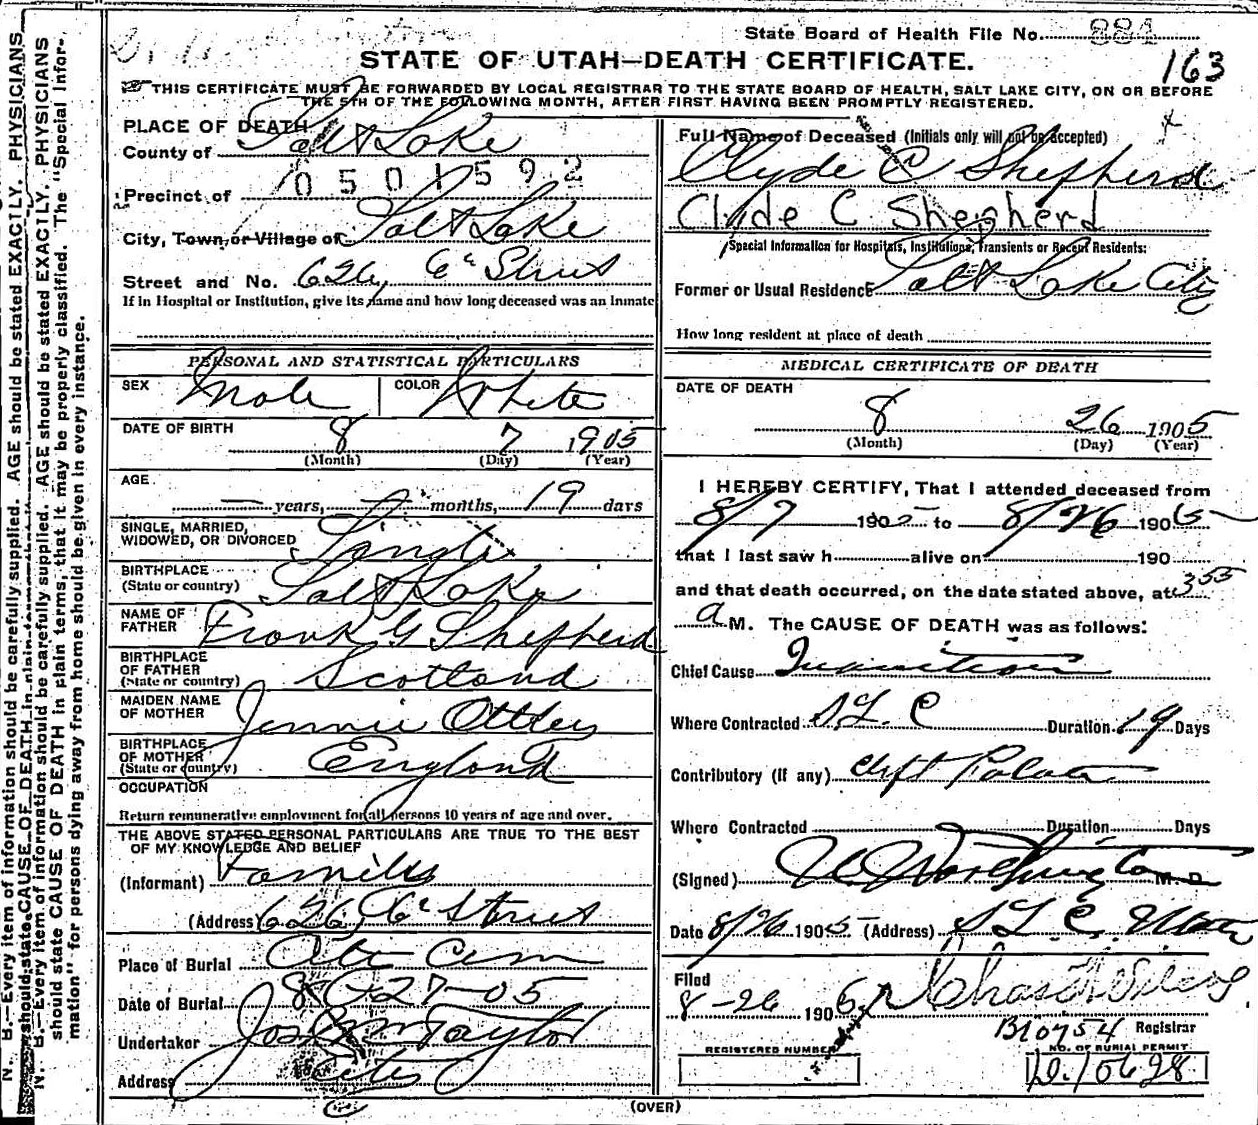 State Board of Health File No. 884
163
STATE OF UTAH—DEATH CERTIFICATE.
THIS CERTIFICATE MUST BE FORWARDED BY LOCAL REGISTRAR TO THE STATE BOARD OF HEALTH, SALT LAKE CITY, ON OR BEFORE
THE 5TH OF THE FOLLOWING MONTH, AFTER FIRST HAVING BEEN PROMPTLY REGISTERED.
PLACE OF DEATH
County of Salt Lake
0501592
Precinct of
City, Town, or Village of Salt Lake
Street and No. 626, 6th Street
If in Hospital or Institution, give its name and how long deceased was an Inmate
PERSONAL AND STATISTICAL PARTICULARS
SEX Male COLOR White
DATE OF BIRTH 8 7 1905
(Month) (Day) (Year)
AGE
— years, months, 19 days
SINGLE, MARRIED,
WIDOWED, OR DIVORCED Single
BIRTHPLACE
(State or country) Salt Lake
NAME OF
FATHER Frank G Shepherd
BIRTHPLACE
OF FATHER
(State or country) Scotland
MAIDEN NAME
OF MOTHER Jennie Ottley
BIRTHPLACE
OF MOTHER
(State or country) England
OCCUPATION
Return remunerative employment for all persons 10 years of age and over.
THE ABOVE STATED PERSONAL PARTICULARS ARE TRUE TO THE BEST
OF MY KNOWLEDGE AND BELIEF
(Informant) Family
(Address) 626, 6th Street
Place of Burial Cem
Date of Burial 8-27-05
Undertaker Jos Taylor
Address City
Full Name of Deceased (Initials only will not be accepted)
Clyde C Shepherd
Clyde C Shepherd
Special Information for Hospitals, Institutions, Transients or Recent Residents:
Former or Usual Residence Salt Lake City
How long resident at place of death
MEDICAL CERTIFICATE OF DEATH
DATE OF DEATH
8 26 1905
(Month) (Day) (Year)
I HEREBY CERTIFY, That I attended deceased from
8/7 1905 to 8/26 1905
that I last saw h alive on 190
and that death occurred, on the date stated above, at 3 55
a M. The CAUSE OF DEATH was as follows:
Chief Cause Inanition
Where Contracted S L C Duration 19 Days
Contributory (if any) Cleft Palate
Where Contracted Duration Days
(Signed) Worthington M.D.
Date 8/26 1905 (Address) S L C Utah
Filed
8-26 190
B10754 Registrar
REGISTERED NUMBER
NO. OF BURIAL PERMIT
D.10628
(OVER)
N. B.—Every item of information should be carefully supplied. AGE should be stated EXACTLY. PHYSICIANS
should state CAUSE OF DEATH in plain terms, that it may be properly classified. The "Special Infor-
mation" for persons dying away from home should be given in every instance.